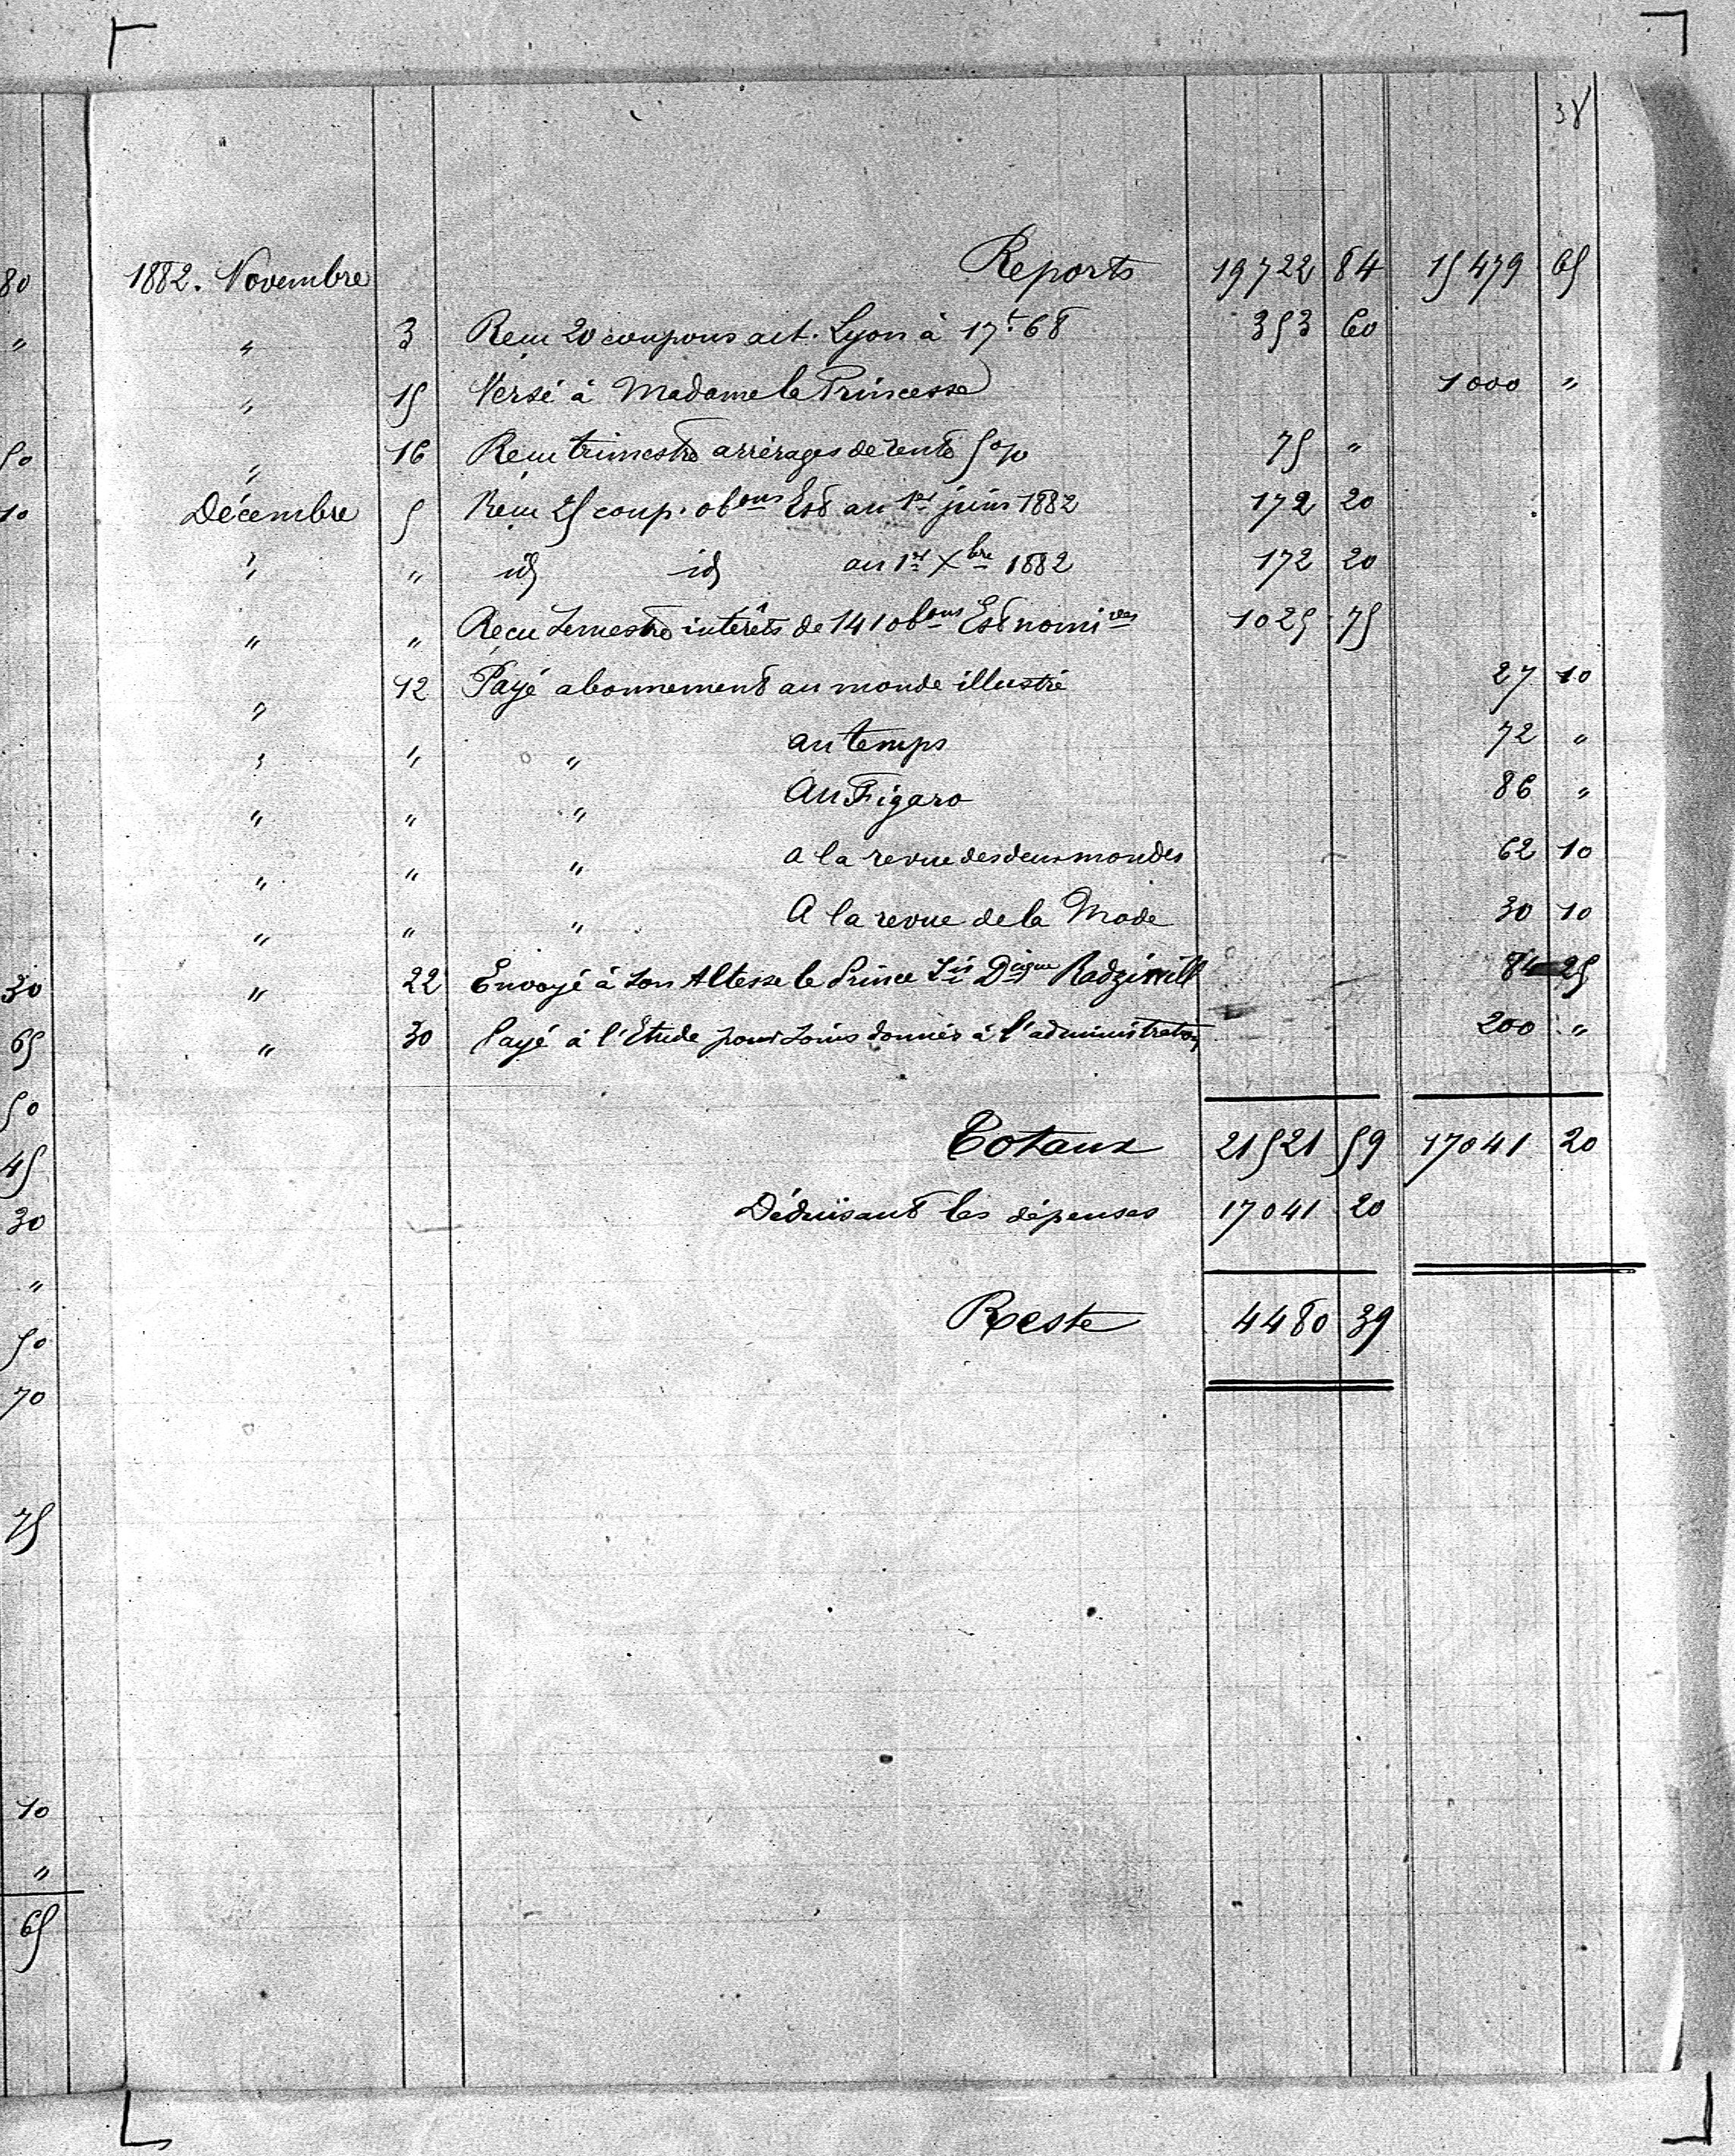 38
80 1882. Novembre Reports 19722 84 15479 65
" " 3 Reçu 20 coupons act. Lyon à 17f.68 353 60
" 15 Versé à Madame la Princesse 1000 "
50 " 16 Reçu trimestre arrérages de rente 5% 75 "
10 Décembre 5 Reçu 25 coup. obons Est au 1er juin 1882 172 20
" " id id au 1er Xbre 1882 172 20
" " Reçu Semestre intérêts de 141 obons Est nomives 1025 75
" 12 Payé abonnement au monde illustré 27 10
" " " au temps 72 "
" " " Au Figaro 86 "
" " " a la revue des deux mondes 62 10
" " " A la revue de la Mode 30 10
30 " 22 Envoyé à Son Altesse le Prince Dque Radziwill 84 25
65 " 30 Payé à l'Etude pour soins donnés à l'administration 200 "
50
45 Totaux 21521 59 17041 20
30 Déduisant les dépenses 17041 20
"
50 Reste 4480 39
70
75
10
"
65